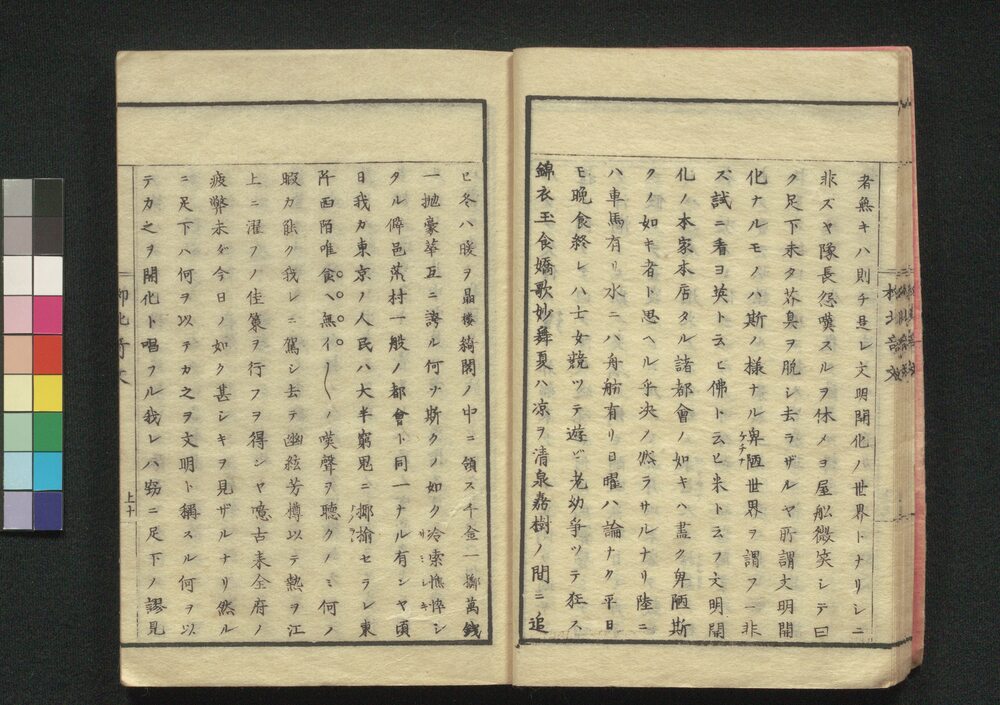 者無キハ則チ是レ文明開化ノ世界トナリシニ
非ズヤ隊長怨嘆スルヲ休メヨ屋舩微笑シテ曰
ク足下未タ芥臭ヲ脱シ去ラザルヤ所謂文明開
化ナルモノハ斯ノ様ナル卑陋世界ヲ謂フニ非
ケチナ
ズ試ニ看ヨ英ト云ヒ佛ト云ヒ米ト云フ文明開
化ノ本家本店タル諸都會ノ如キハ盡ク卑陋斯
クノ如キ者ト思ヘル乎决ノ然ラサルナリ陸ニ
ハ車馬有リ水ニハ舟舫有リ日曜ハ論ナク平日
モ晩食終レハ士女競ツテ遊ビ老幼爭ツテ狂ス
錦衣玉食嬌歌妙舞夏ハ凉ヲ清泉嘉樹ノ間ニ追
ヒ冬ハ暖ヲ晶楼綺閣ノ中ニ領ス千金一擲萬錢
一抛豪華互ニ誇ル何ゾ斯クノ如ク冷索憔悴シ
タル僻邑荒村一般ノ都會ト同一ナル有ンヤ頃
日我カ東京ノ人民ハ大半窮鬼ニ揶揄セラレ東
阡西陌唯食ヘ無イ〱ノ嘆聲ヲ聴クノミ何ノ
暇カ能ク我レニ駕シ去テ幽絃芳樽以テ熱ヲ江
上ニ濯フノ佳策ヲ行フヲ得ンヤ噫古来全府ノ
疲弊未ダ今日ノ如ク甚シキヲ見ザルナリ然ル
ニ足下ハ何ヲ以テカ之ヲ文明ト稱スル何ヲ以
テカ之ヲ開化ト唱フル我レハ窃ニ足下ノ謬見
上十